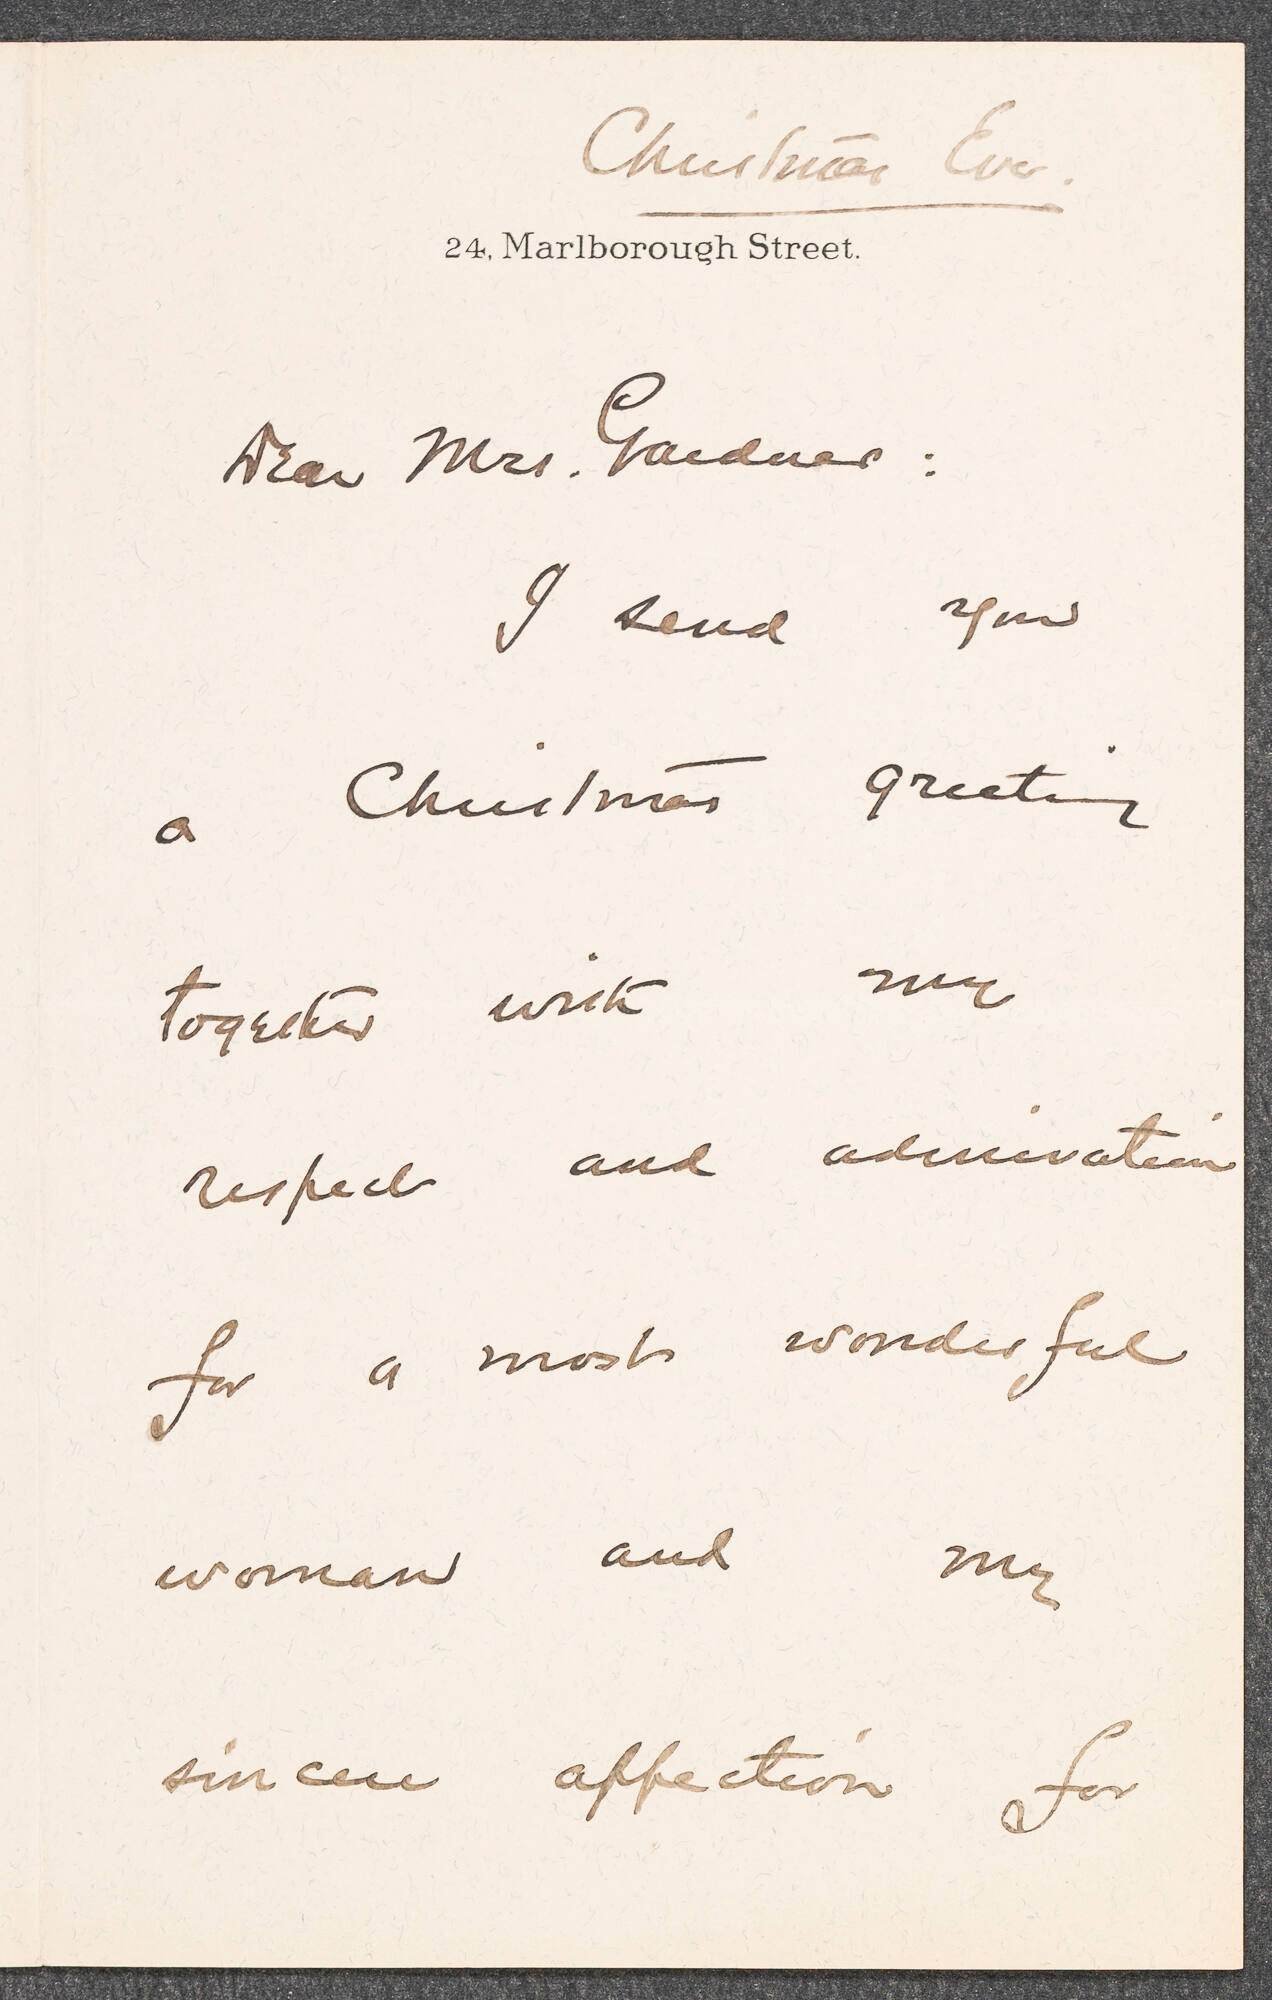 Christmas Eve.
24, Marlborough Street.
Dear Mrs. Gardner:
I send you
a Christmas greeting
together with my
respect and admiration
for a most wonderful
woman and my
sincere affection for